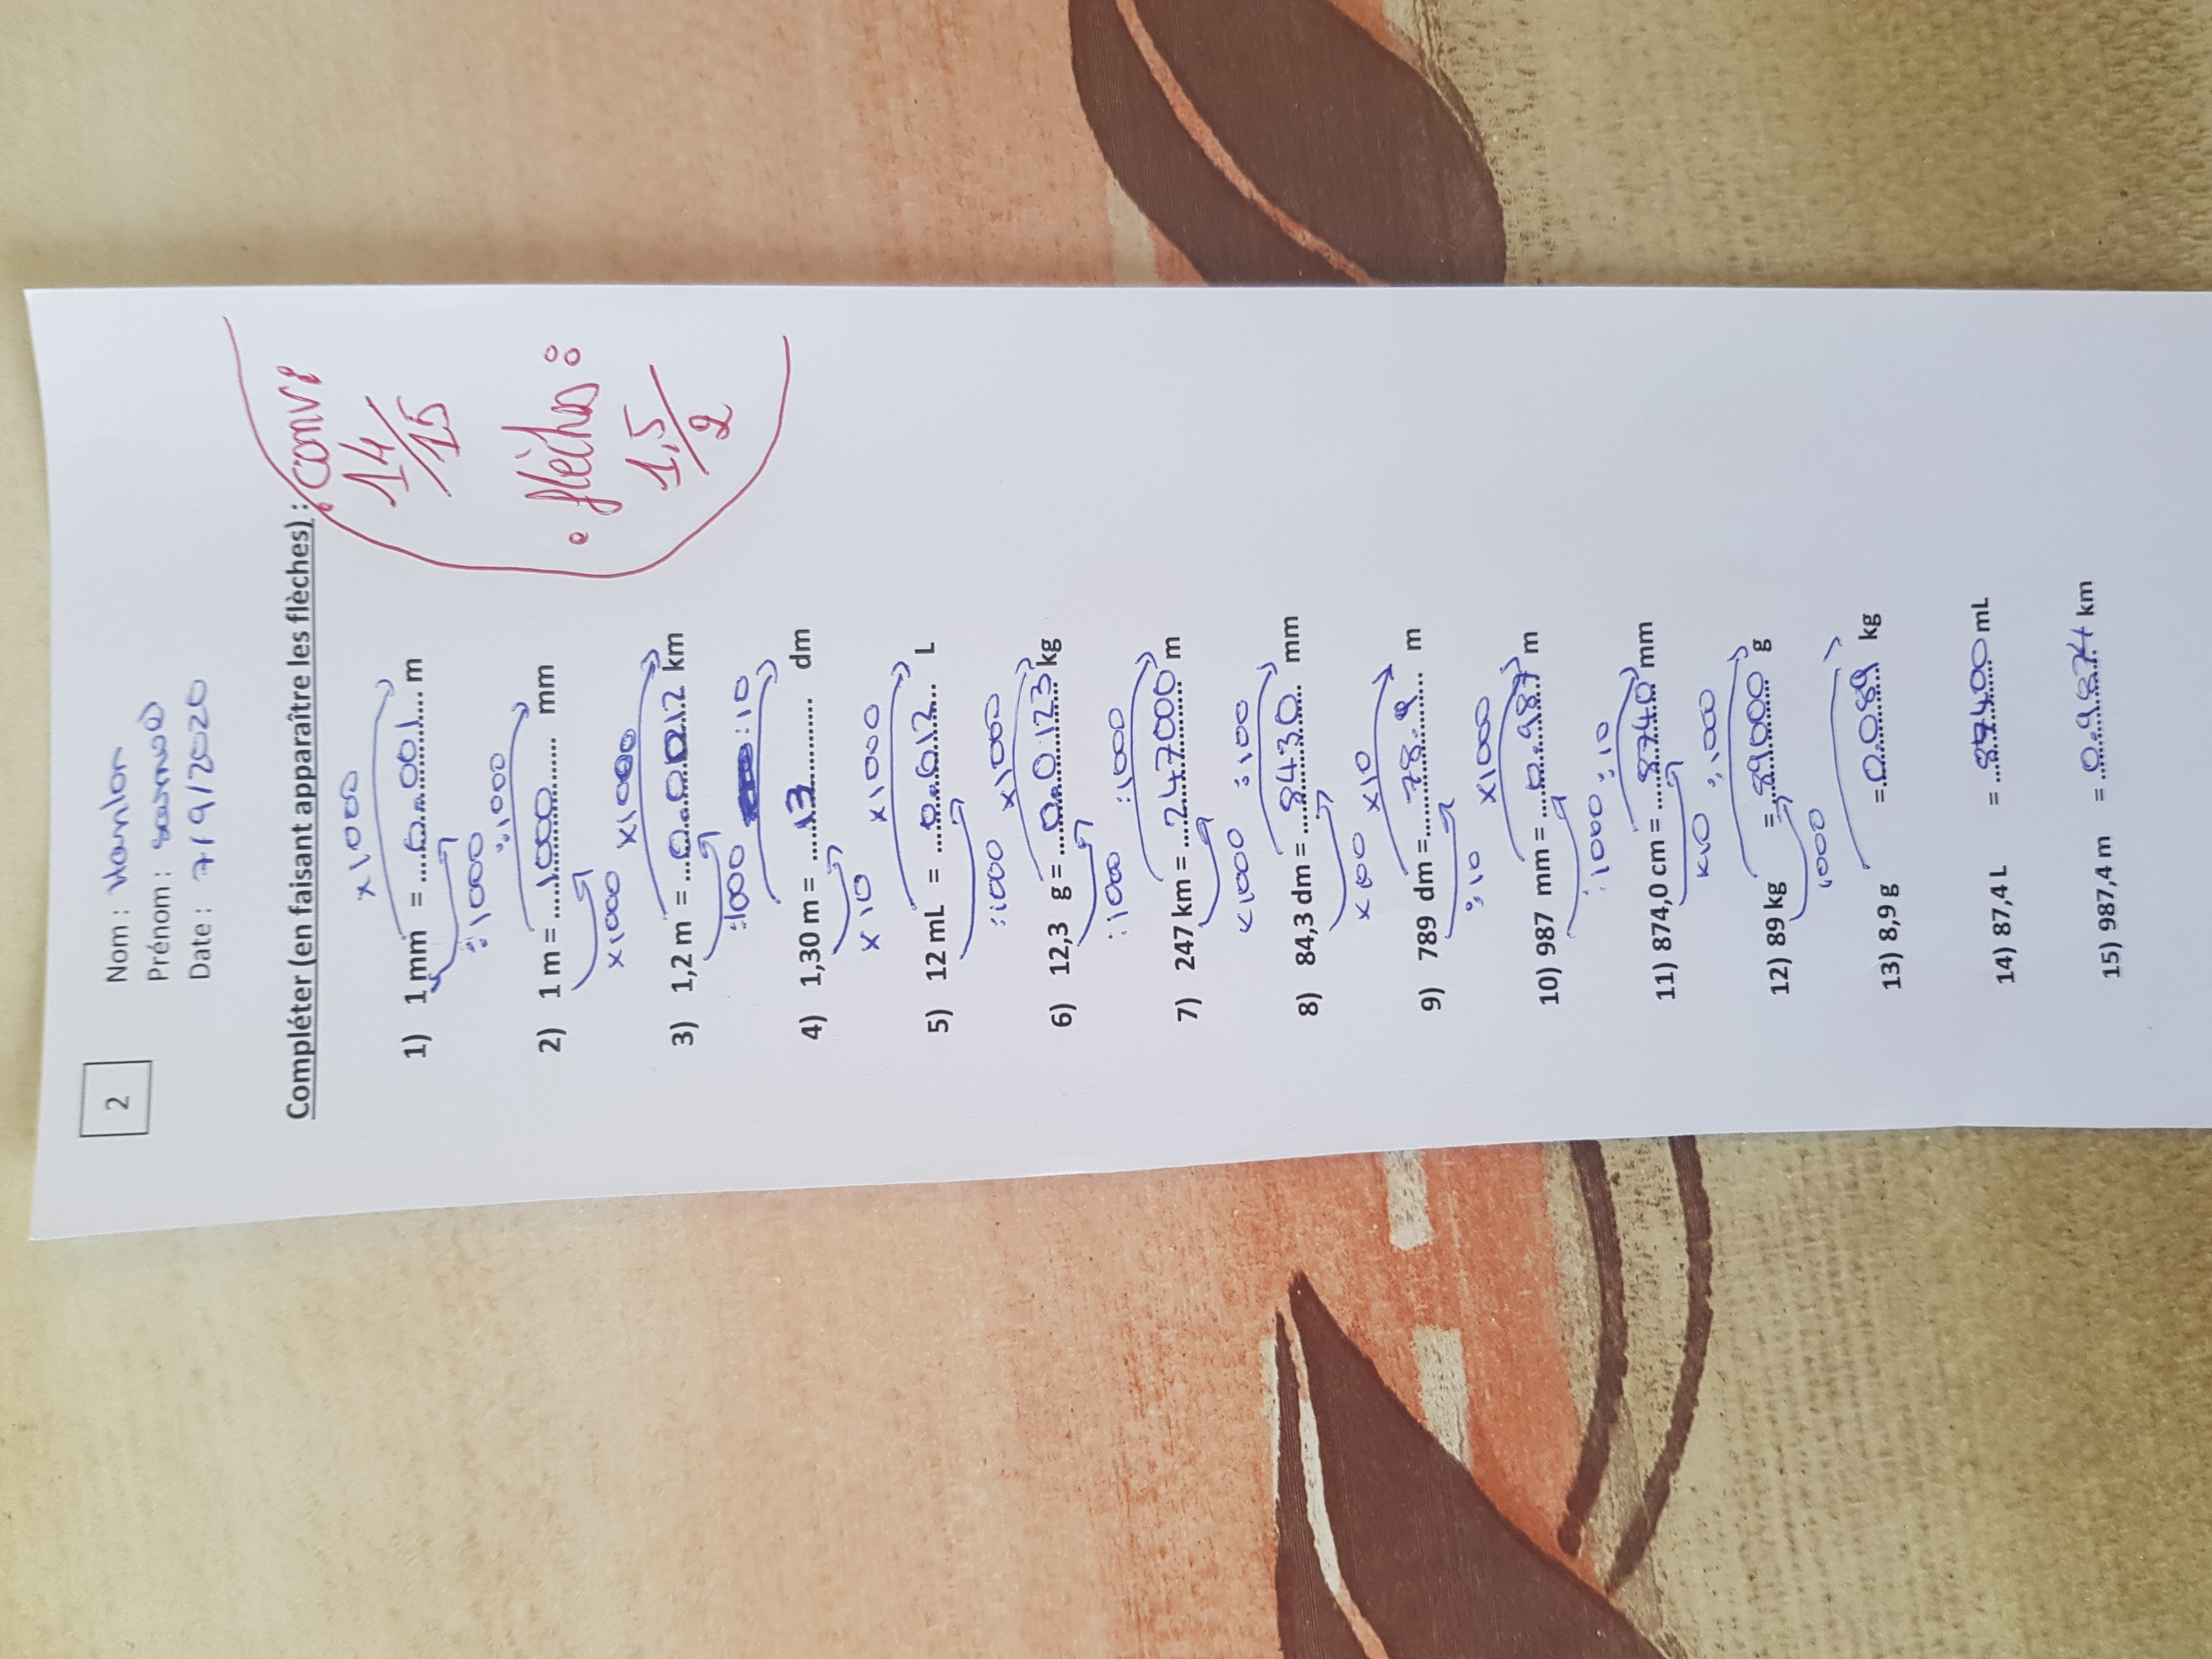 2
Nom : Hanlon
Prénom :
Date : 7/9/2020
Compléter (en faisant apparaître les flèches) :
conv :
14/15
• flèches :
1,5/2
x1000
1) 1 mm = 0.001 m
:1000
:1000
2) 1 m = 1000 mm
x1000
x1000
3) 1,2 m = 0.0012 km
:1000
:10
4) 1,30 m = 13 dm
x10
x1000
5) 12 mL = 0.012 L
:1000
x1000
6) 12,3 g = 0.0123 kg
:1000
:1000
7) 247 km = 247000 m
x1000
:100
8) 84,3 dm = 8430 mm
x100
x10
9) 789 dm = 78.9 m
:10
x1000
10) 987 mm = 0.987 m
:1000
:10
11) 874,0 cm = 8740 mm
x10
:1000
12) 89 kg = 89000 g
1000
13) 8,9 g = 0.089 kg
14) 87,4 L = 87400 mL
15) 987,4 m = 0.9874 km